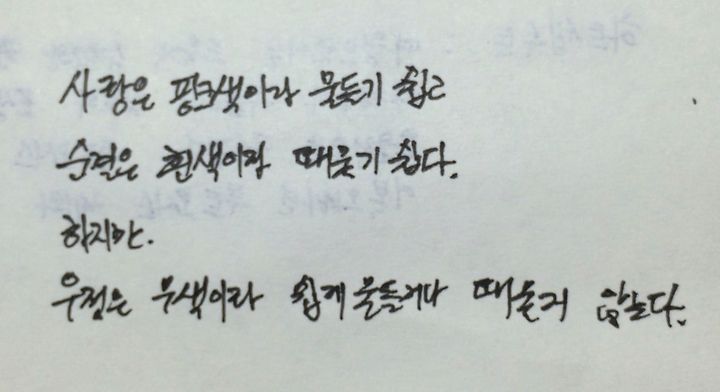 사랑은 핑크색이라 물들기 쉽고
순결은 흰색이라 때묻기 쉽다.
하지만.
우정은 무색이라 쉽게 물들거나 때묻지 않는다.